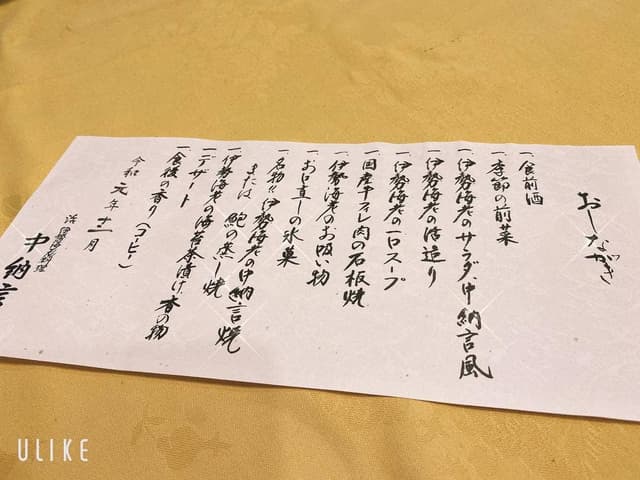 おしながき
一、食前酒
一、季節の前菜
一、伊勢海老のサラダ、中納言風
一、伊勢海老の活造り
一、伊勢海老の一口スープ
一、国産牛フィレ肉の石板焼
一、伊勢海老のお吸い物
一、お口直しの氷菓
一、名物!!伊勢海老の中納言焼
または 鮑の蒸し焼
一、伊勢海老の海苔茶漬け、香の物
一、デザート
一、食後の香り（コーヒー）
令和元年十二月
活伊勢海老料理
中納言
ULIKE